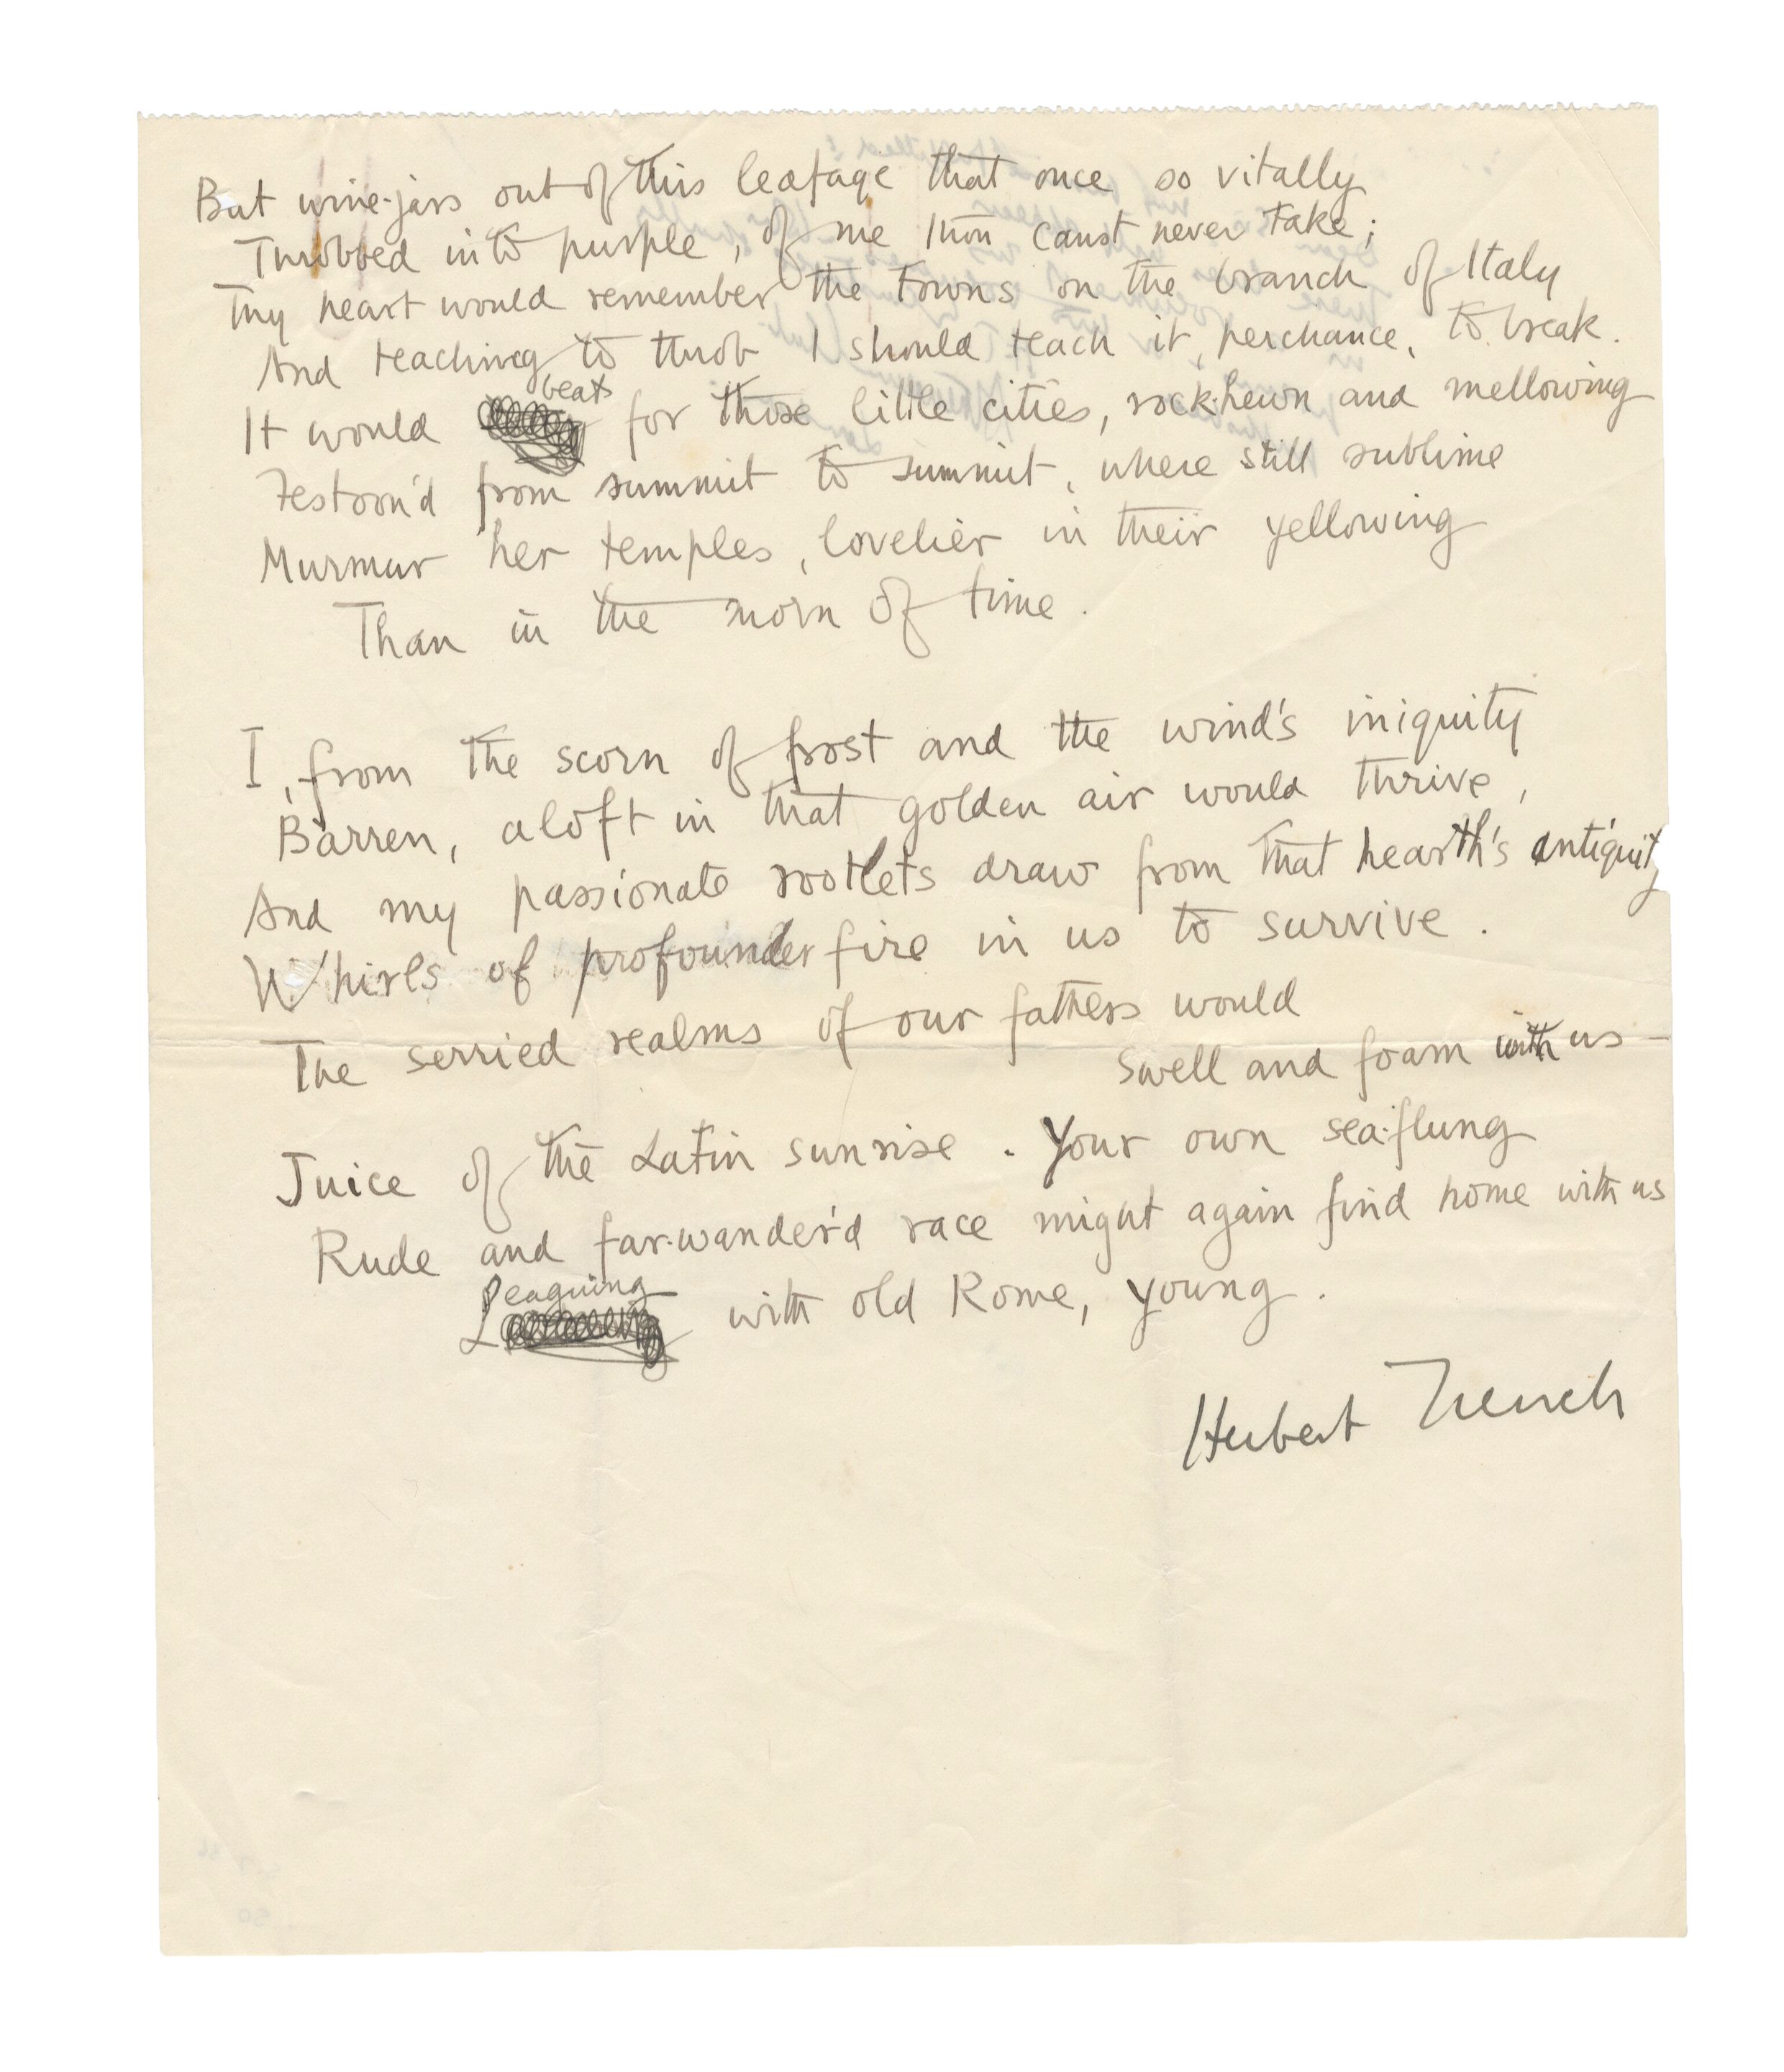 But wine-jars out of this leafage that once so vitally
Throbbed into purple, of me thou canst never take;
Thy heart would remember the towns on the branch of Italy
And teaching to throb I should teach it, perchance, to break.
It would beat for those little cities, rock-hewn and mellowing
Festoon'd from summit to summit, where still sublime
Murmur her temples, lovelier in their yellowing
Than in the morn of time.
I, from the scorn of frost and the wind's iniquity
Barren, aloft in that golden air would thrive,
And my passionate rootlets draw from that hearth's antiquity
Whirls of profounder fire in us to survive.
The serried realms of our fathers would
swell and foam with us –
Juice of the Latin sunrise. Your own sea-flung
Rude and far-wander'd race might again find home with us
Leaguing with old Rome, young.
Herbert Trench